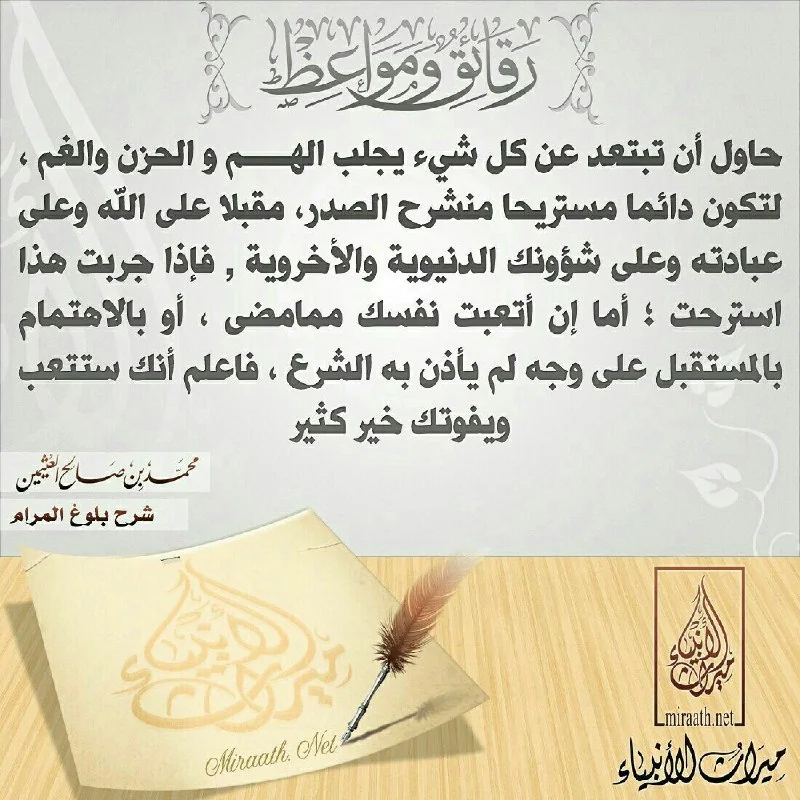 رقائق ومواعظ
حاول أن تبتعد عن كل شيء يجلب الهـــم و الحزن والغم ،
لتكون دائما مستريحا منشرح الصدر، مقبلا على الله وعلى
عبادته وعلى شؤونك الدنيوية والأخروية , فإذا جربت هذا
استرحت ؛ أما إن أتعبت نفسك ممامضى ، أو بالاهتمام
بالمستقبل على وجه لم يأذن به الشرع ، فاعلم أنك ستتعب
ويفوتك خير كثير
محمد بن صالح العثيمين
شرح بلوغ المرام
ميراث الأنبياء
Miraath. Net
ميراث الأنبياء
miraath.net
ميراث الأنبياء